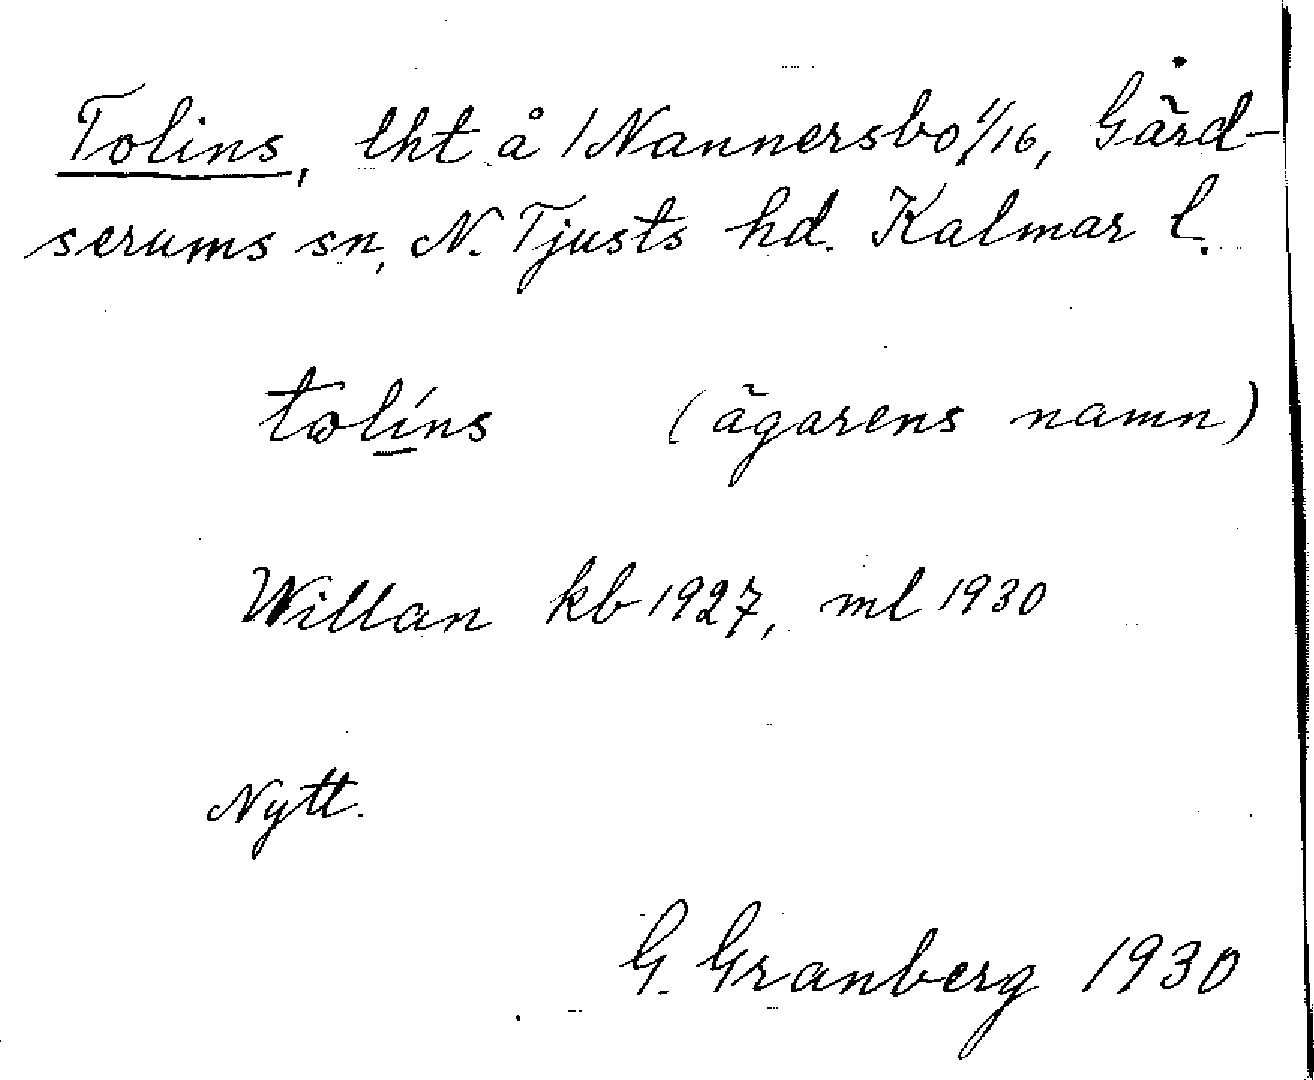 Tolins, lht å /Nannersbo 1/16, Gärd-
serums sn, N. Tjusts hd. Kalmar l.
tolíns (ägarens namn)
Willan kb 1927, ml 1930
Nytt.
G. Granberg 1930